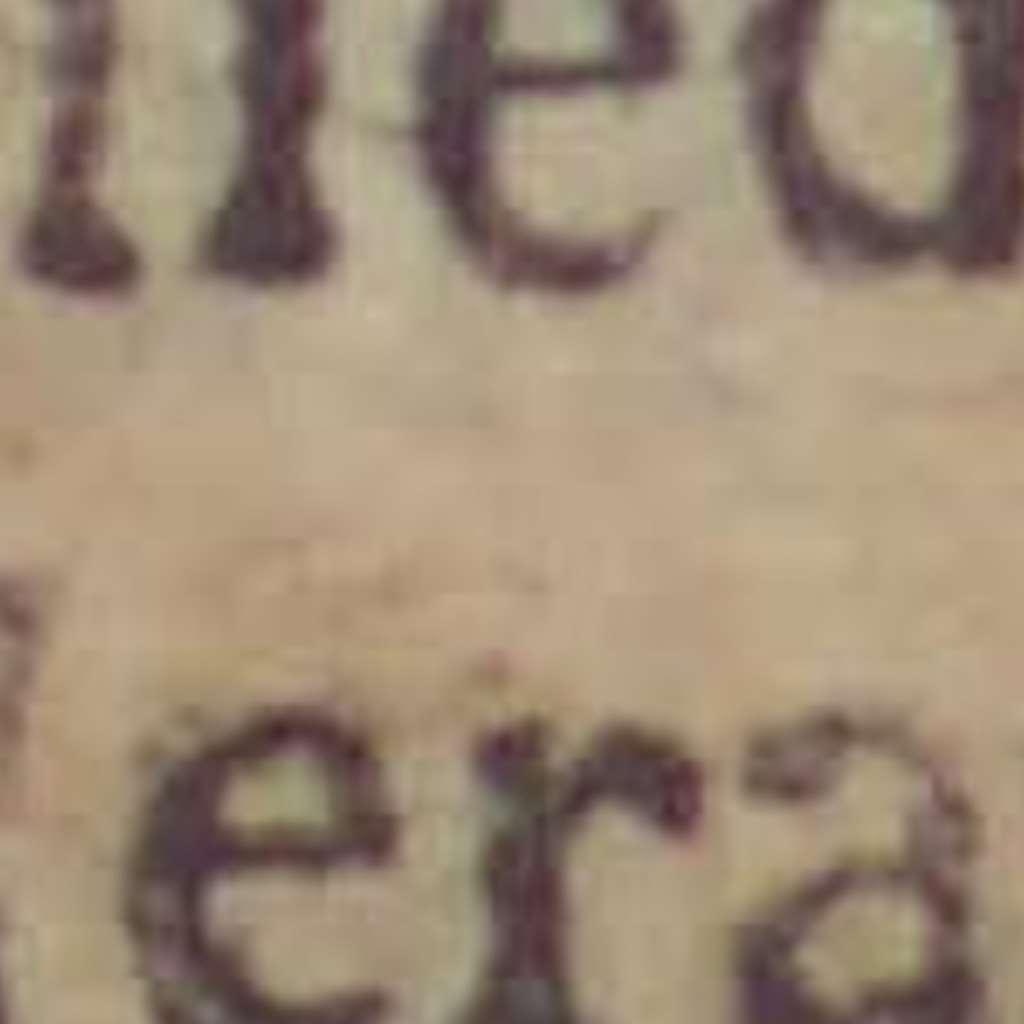 ned
era